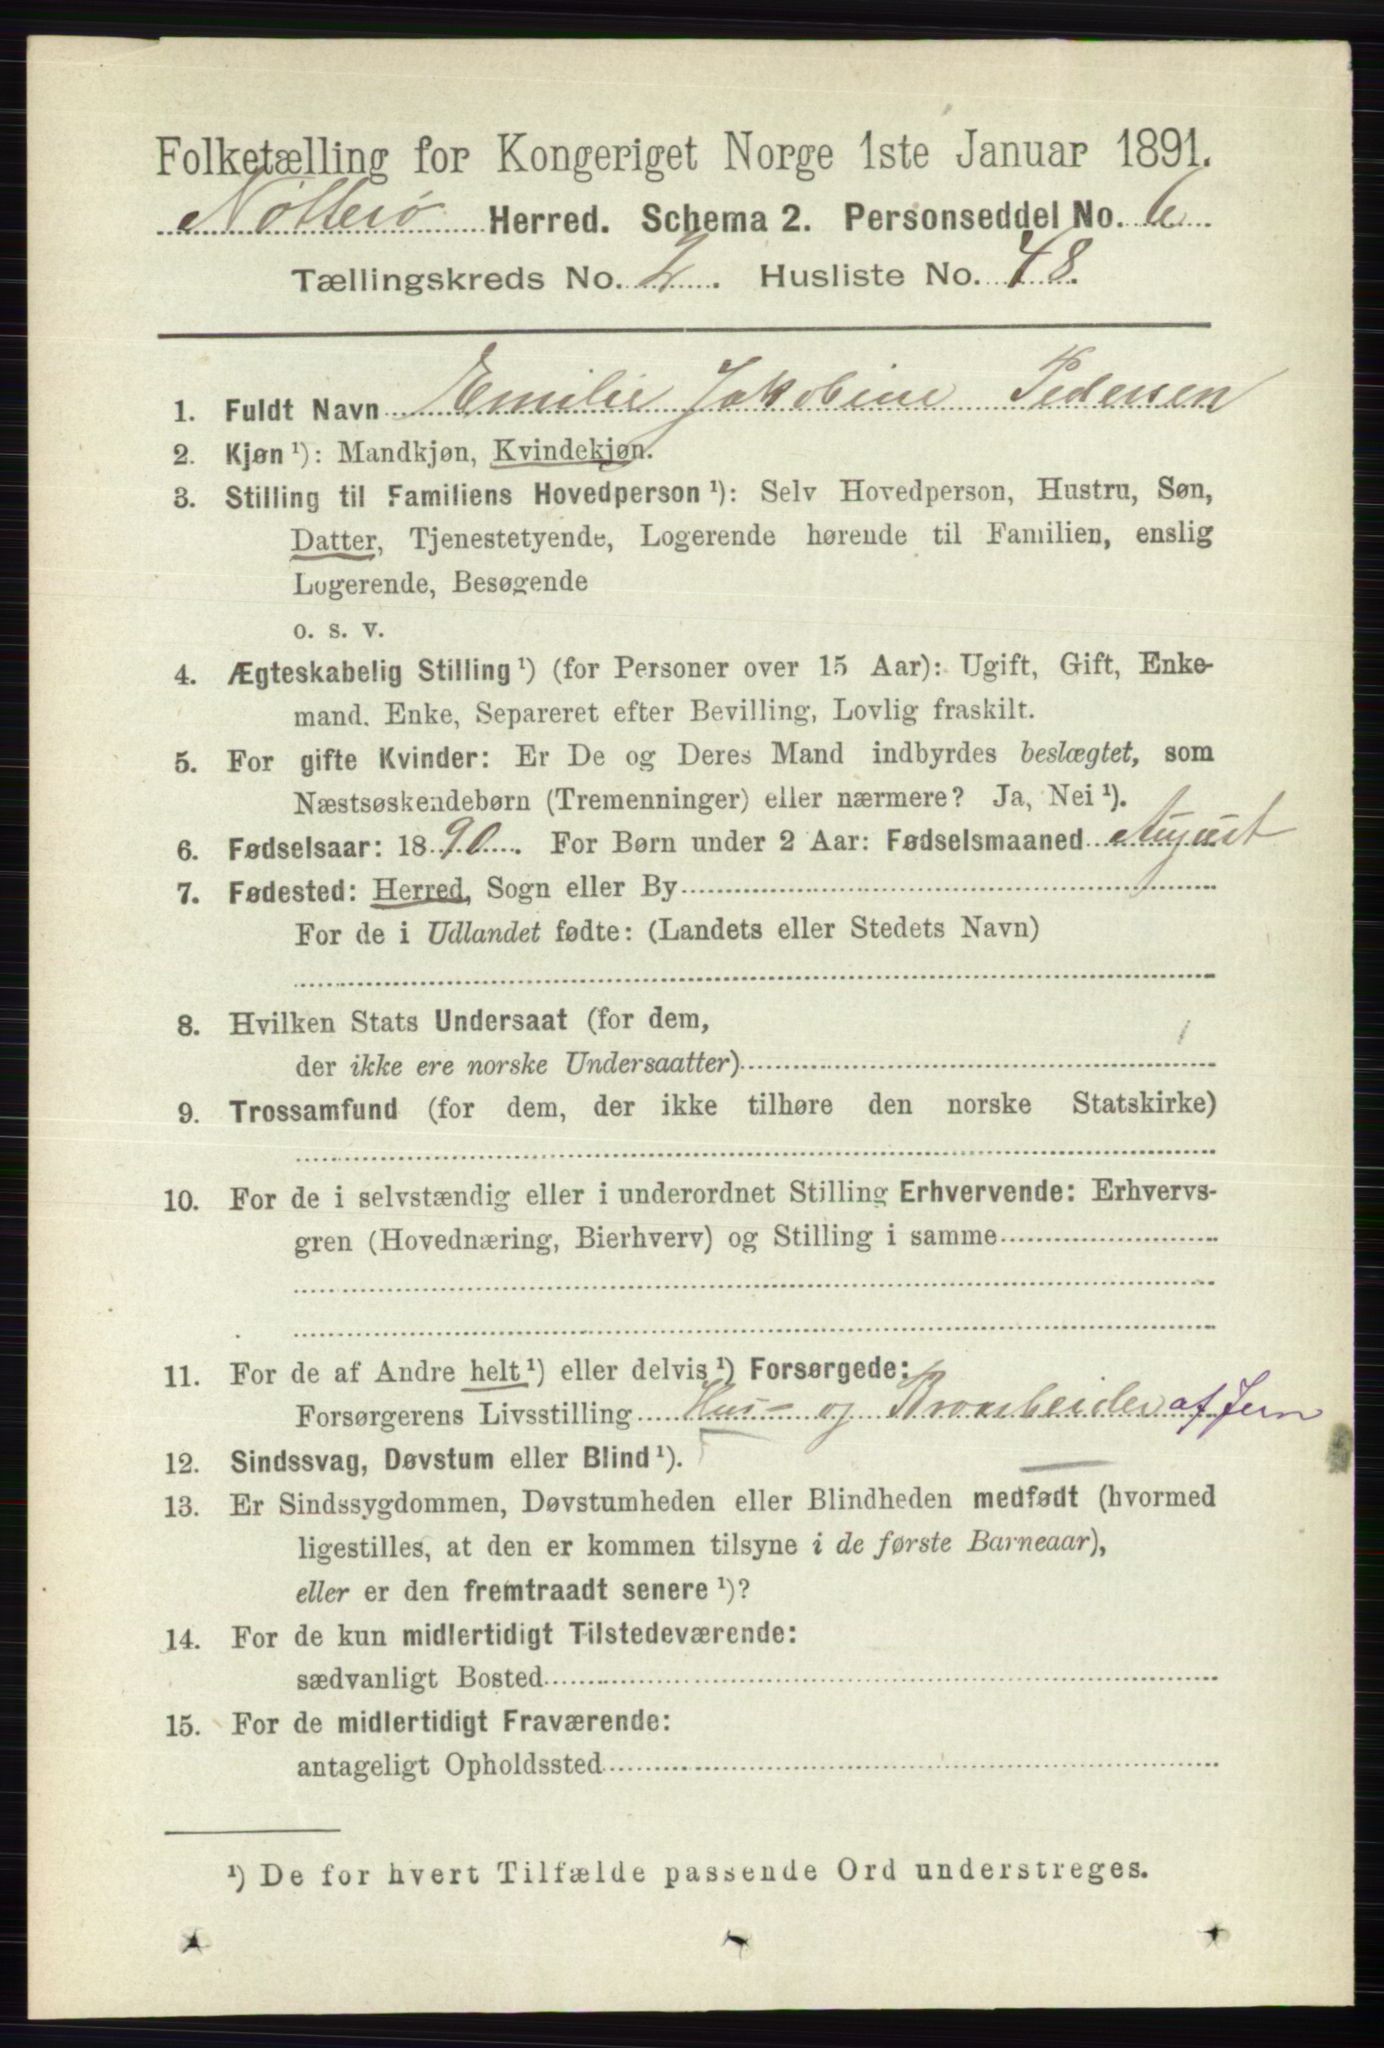 Folketælling for Kongeriget Norge 1ste Januar 1891.
Nøtterø Herred. Schema 2. Personseddel No. 6
Tællingskreds No. 2. Husliste No. 48.
1. Fuldt Navn Emilie Jakobine Pedersen
2. Kjøn ¹): Mandkjøn, Kvindekjøn.
3. Stilling til Familiens Hovedperson ¹): Selv Hovedperson, Hustru, Søn,
Datter, Tjenestetyende, Logerende hørende til Familien, enslig
Logerende, Besøgende
o. s. v.
4. Ægteskabelig Stilling ¹) (for Personer over 15 Aar): Ugift, Gift, Enke-
mand. Enke, Separeret efter Bevilling, Lovlig fraskilt.
5. For gifte Kvinder: Er De og Deres Mand indbyrdes beslægtet, som
Næstsøskendebørn (Tremenninger) eller nærmere? Ja, Nei ¹).
6. Fødselsaar: 1890. For Børn under 2 Aar: Fødselsmaaned August
7. Fødested: Herred, Sogn eller By
For de i Udlandet fødte: (Landets eller Stedets Navn)
8. Hvilken Stats Undersaat (for dem,
der ikke ere norske Undersaatter)
9. Trossamfund (for dem, der ikke tilhøre den norske Statskirke)
10. For de i selvstændig eller i underordnet Stilling Erhvervende: Erhvervs-
gren (Hovednæring, Bierhverv) og Stilling i samme
11. For de af Andre helt ¹) eller delvis ¹) Forsørgede:
Forsørgerens Livsstilling Hus- og Broarbeider af Jern
12. Sindssvag, Døvstum eller Blind ¹).
13. Er Sindssygdommen, Døvstumheden eller Blindheden medfødt (hvormed
ligestilles, at den er kommen tilsyne i de første Barneaar),
eller er den fremtraadt senere ¹)?
14. For de kun midlertidigt Tilstedeværende:
sædvanligt Bosted
15. For de midlertidigt Fraværende:
antageligt Opholdssted
¹) De for hvert Tilfælde passende Ord understreges.